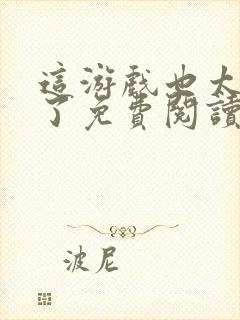 這游戲也太
了免費閱讀
波尼